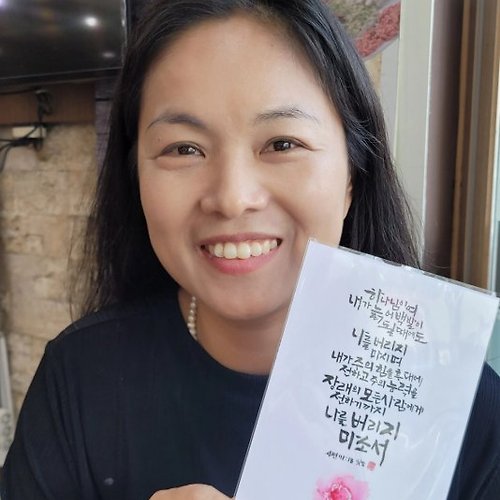 하나님이여
내가 늙어 백발이
될 때에도
나를 버리지
마시며
내가 주의 힘을 후대에
전하고 주의 능력을
장래의 모든 사람에게
전하기까지
나를 버리지
마소서
시편 71:18